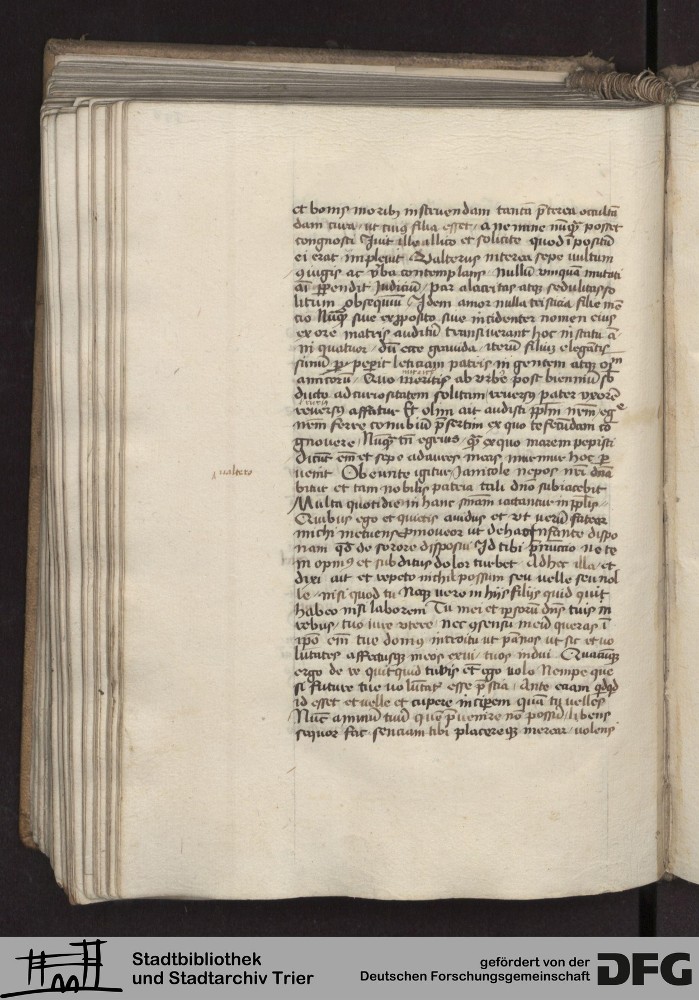 et bonis moribȝ instruendam tantā p̄terea occultā
dam cura / ut cuiꝰ filia esset / a nemine nūqȝ posset
congnosci Iuit ille allico et solicite quod īpositū
ei erat impleuit Walterus interea sepe uultum
ꝯiugis ac v̓ba contemplans Nullū vmquā mutati
āi ꝑpendit Iudiciū / Par alacritas atqȝ sedulitas so
litum obsequiuū / Idem amor nulla tristicia filie mē
cio Nūqȝ siue ex ꝓposito siue incidenter nomen eius
ex ore matris auditū transiuerant hoc in statu ā
ni quatuor / dū ecce grauida / iterū filiuȝ elegātis
simū peperit leticiam patris ingentem atqȝ oīm
amicorū / Quo nutricis ab vbere post bienniū sb
ducto ad curiositatem solitam reuersꝰ pater vxorē
rursus affatur Et olim ait audisti pp̄lm meū eg̓e
nem ferre conubiū p̄sertim ex quo te fecūdam co
gnouere / Nūqȝ tn̄ egrius qȝ ex quo marem pepisti
Dicūt em̄ et sepe ad aures meas murmur hoc ꝑ
uenit Obeunte igitur Ianicole nepos nr̄i dn̄a
bitur et tam nobilis patria tali dn̄o subiacebit
ualtero
Multa quotidie in hanc sn̄iam iactantur in pp̄lis
Quibus ego et quietis auidus et vt verū fatear
michi metuens ꝑmoueor ut de hac infante dispo
nam qd̄ de sorore disposui Id tibi p̄nuncio ne te
inopinꝰ et subditus dolor turbet / Ad hec illa / et
dixi ait et repeto nichil possum seu uelle seu nol
le / nisi quod tu Neqȝ vero in hiis filijs quid quit
habeo nisi laborem Tu mei et ipsorū dn̄s tuis in
rebus / tuo iure vtere / nec ꝯsensū meū queras ī
ip̄o em̄ tue domꝰ introitu ut pānos ut sic et uo
lūtates affectusqȝ meos exui / tuos indui Quacūqȝ
ergo de re quitquid tu vis et ego uolo Nempe que
si future tue uolūtatꝭ essē p̄scia / Ante eciam qd̄qd̄
id esset et uelle et cupere inciperem quā tu velles
Nūc animū tuū quē p̄uenire nō possū / libens
sequor fac senciam tibi placereqȝ mereor / uolens
Stadtbibliothek
und Stadtarchiv Trier
gefördert von der
Deutschen Forschungsgemeinschaft
DFG